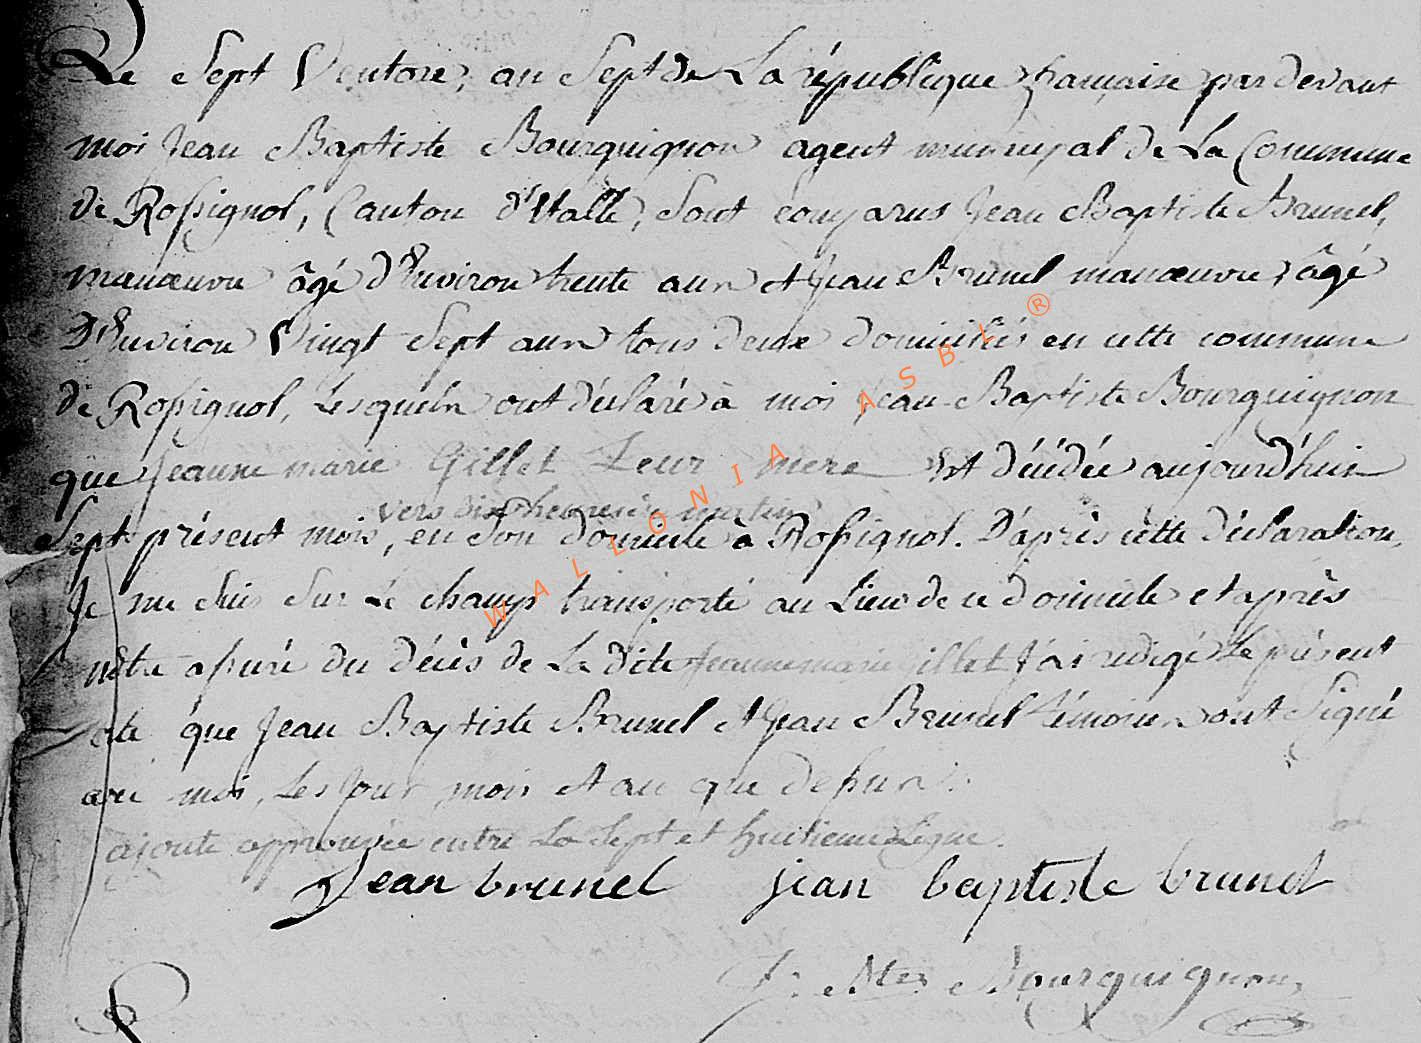 Le Sept Ventose, an Sept de La république française pardevant
moi Jean Baptiste Bourguignon agent municipal de La Commune
de Rossignol, Canton d'Etalle, Sont comparus Jean Baptiste Brunel,
manœuvre âgé d'Environ trente ans et Jean Brunel manœuvre, âgé
D'Environ Vingt Sept ans tous deux domiciliés en cette commune
de Rossignol, Lesquels ont déclaré à moi Jean Baptiste Bourguignon
que Jeanne marie Gillet Leur mere Est décédée aujourd'huis
vers dix heures du matin
Sept présent mois, en Son domicile à Rossignol. D'après cette déclaration,
Je me suis Sur Le champ transporté au Lieu de ce domicile et après
m'être assuré du décès de La dite Jeanne marie gillet J'ai redigé Le présent
acte que Jean Baptiste Brunel et Jean Brunel témoins ont Signé
avec moi, Les Jour mois et an que dessus.
ajoute approuvée entre La Sept et huitieme Ligne.
Jean brunel jean baptiste brunel
J. Bte Bourguignon
WALLONIA ASBL ®